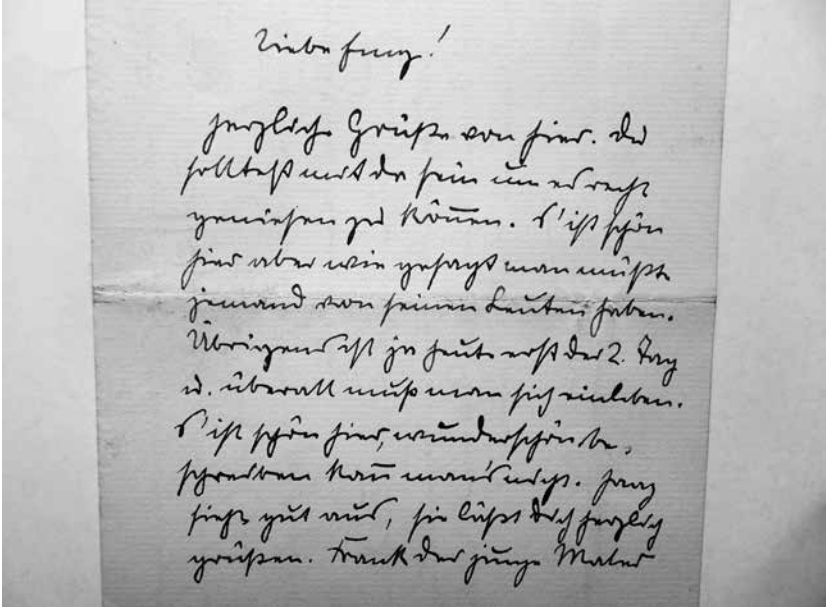 Liebe
herzliche Grüße von hier. Du
solltest mit da sein um es recht
geniesen zu kön̄en. S'ist schön
hier aber wie gesagt man müßte
jemand von seinen Leuten haben.
Übrigens ist ja heute erst der 2. Tag
u. überall muß man sich einleben.
S'ist schön hier, wunderschön be-
schreiben kan̄ man's nicht.
sieht gut aus, sie läßt Dich herzlich
grüßen. Frank der junge Maler